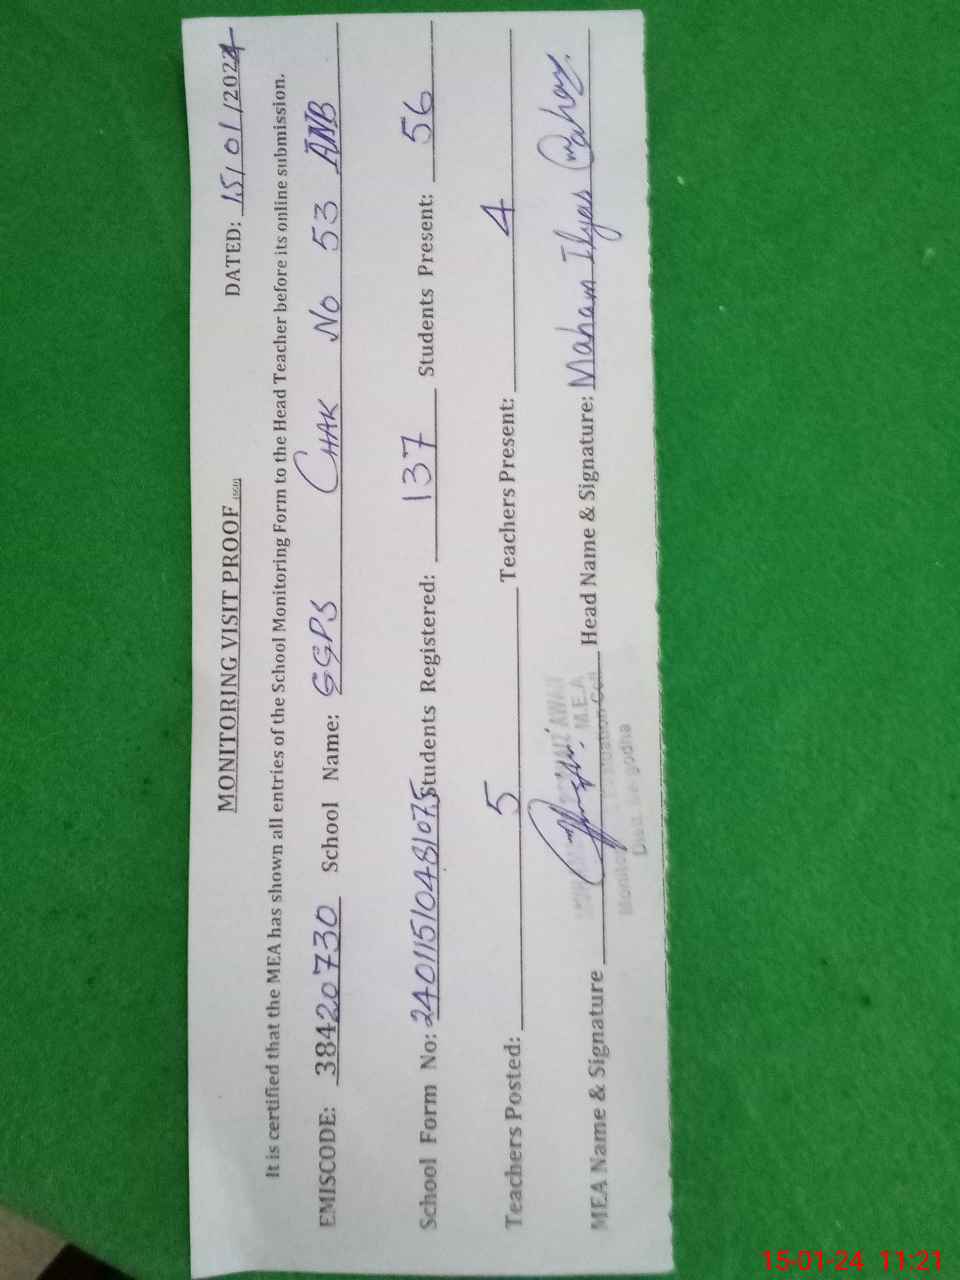 MONITORING VISIT PROOF
DATED: 15/01/2024
It is certified that the MEA has shown all entries of the School Monitoring Form to the Head Teacher before its online submission.
EMISCODE: 38420730 School Name: GGPS CHAK NO 53 ANB
School Form No: 24011510481075 Students Registered: 137 Students Present: 56
Teachers Posted: 5 Teachers Present: 4
MEA Name & Signature Head Name & Signature: Maham Ilyas Maham
M.E.A
15-01-24 11:21